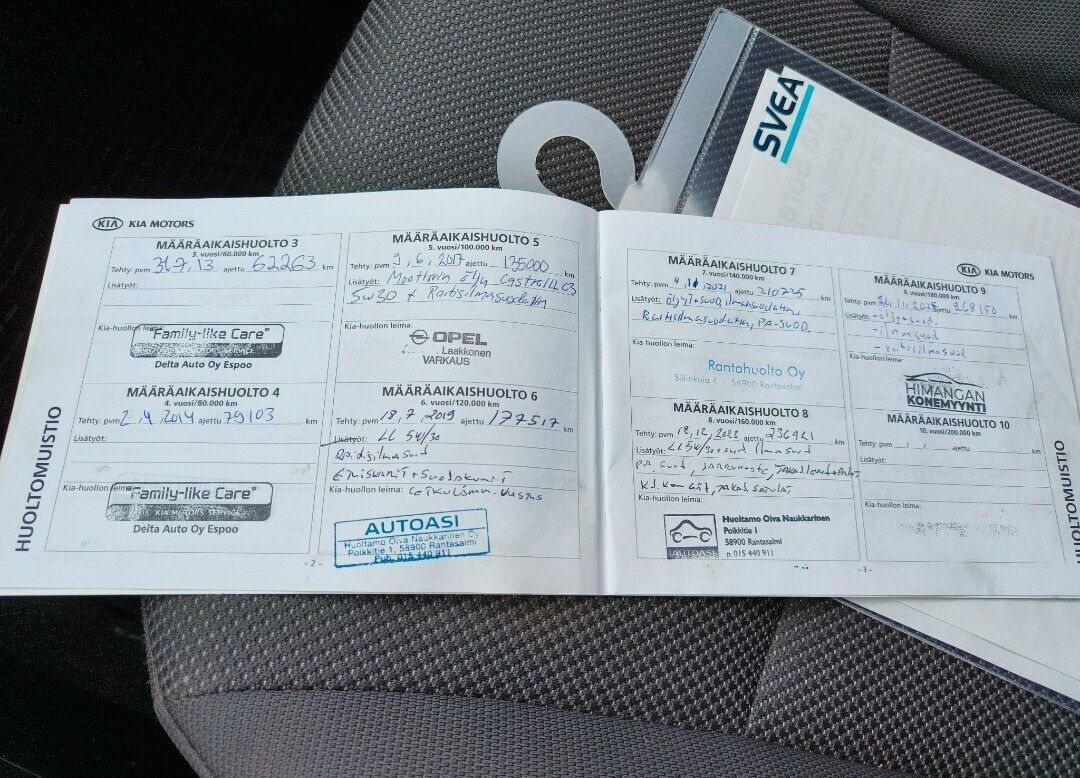 SVEA
KIA KIA MOTORS
MÄÄRÄAIKAISHUOLTO 3
3. vuosi/60.000 km
Tehty: pvm 31.7.13 ajettu 62263 km
Lisätyöt:
Kia-huollon leima:
"Family-like Care"
KIA MOTORS SERVICE
Delta Auto Oy Espoo
MÄÄRÄAIKAISHUOLTO 4
4. vuosi/80.000 km
Tehty: pvm 2.9.2014 ajettu 79103 km
Lisätyöt:
Kia-huollon leima:
"Family-like Care"
KIA MOTORS SERVICE
Delta Auto Oy Espoo
HUOLTOMUISTIO
MÄÄRÄAIKAISHUOLTO 5
5. vuosi/100.000 km
Tehty: pvm 9.6.2017 ajettu 135000 km
Lisätyöt: Moottorin öljy Castrol C3
5W30 + Raitisilmasuodatin
Kia-huollon leima:
OPEL
Laakkonen
VARKAUS
MÄÄRÄAIKAISHUOLTO 6
6. vuosi/120.000 km
Tehty: pvm 18.7.2019 ajettu 177517 km
Lisätyöt: LL 5W/30
Kia-huollon leima:
AUTOASI
Huoltamo Oiva Naukkarinen Oy
Poikkitie 1, 58900 Rantasalmi
Puh. 015 440 911
- 2 -
MÄÄRÄAIKAISHUOLTO 7
7. vuosi/140.000 km
Tehty: pvm 4.11.2021 ajettu 210725 km
Lisätyöt: öljyt+suod, ilmansuodatin,
Raitisilmasuodatin, PA-SUOD.
Kia-huollon leima:
Rantahuolto Oy
Siilinkuja 4 - 58900 Rantasalmi
MÄÄRÄAIKAISHUOLTO 8
8. vuosi/160.000 km
Tehty: pvm 18.12.2023 ajettu 236921 km
Lisätyöt: LL 5W/30+suod ilmasuod
PA suod, jarruneste,
Kia-huollon leima:
AUTOASI
Huoltamo Oiva Naukkarinen
Poikkitie 1
58900 Rantasalmi
p. 015 440 911
KIA KIA MOTORS
MÄÄRÄAIKAISHUOLTO 9
9. vuosi/180.000 km
Tehty: pvm 26.11.2025 ajettu 268150 km
Lisätyöt: - öljy+suod,
- ilmasuod
- raitisilmasuod
Kia-huollon leima:
HIMANGAN
KONEMYYNTI
MÄÄRÄAIKAISHUOLTO 10
10. vuosi/200.000 km
Tehty: pvm ajettu km
Lisätyöt:
Kia-huollon leima:
- 3 -
HUOLTOMUISTIO